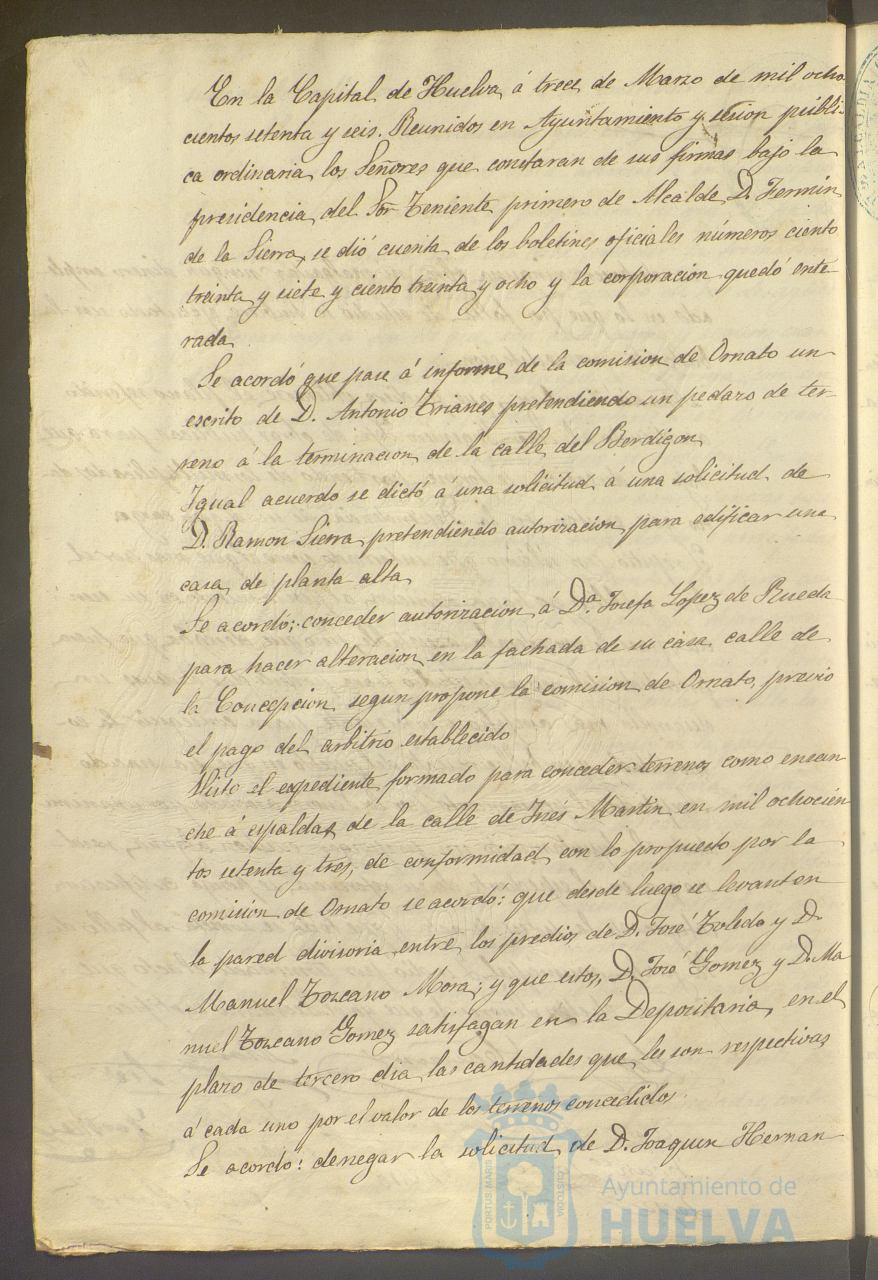 En la Capital de Huelva á trece de Marzo de mil ocho-
cientos setenta y seis. Reunidos en Ayuntamiento y sesion públi-
ca ordinaria los Señores que constaran de sus firmas bajo la
presidencia del Sor Teniente primero de Alcalde D. Fermin
de la Sierra, se dió cuenta de los boletines oficiales números ciento
treinta y siete y ciento treinta y ocho y la corporacion quedó ente-
rada.
Se acordó que pase á informe de la comision de Ornato un
escrito de D. Antonio Trianes pretendiendo un pedazo de ter-
reno á la terminacion de la calle del Berdigon
Igual acuerdo se dictó á una solicitud á una solicitud de
D. Ramon Sierra pretendiendo autorizacion para edificar una
casa de planta alta
Se acordó: conceder autorizacion á Da. Josefa Lopez de Rueda
para hacer alteracion en la fachada de su casa calle de
la Concepcion segun propone la comision de Ornato, previo
el pago del arbitrio establecido
Visto el expediente formado para conceder terrenos como ensan
che á espaldas de la calle de Inés Martin en mil ochocien
tos setenta y tres, de conformidad con lo propuesto por la
comision de Ornato se acordó: que desde luego se levanten
la pared divisoria entre los predios de D. José Toledo y D.
Manuel Toscano Mora; y que estos, D. José Gomez y D. Ma
nuel Toscano Gomez satisfagan en la Depositaria, en el
plazo de tercero dia las cantidades que les son respectivas
á cada uno por el valor de los terrenos concedidos.
Se acordó: denegar la solicitud de D. Joaquin Hernan
PORTUS MARIS CUSTODIA
Ayuntamiento de
HUELVA